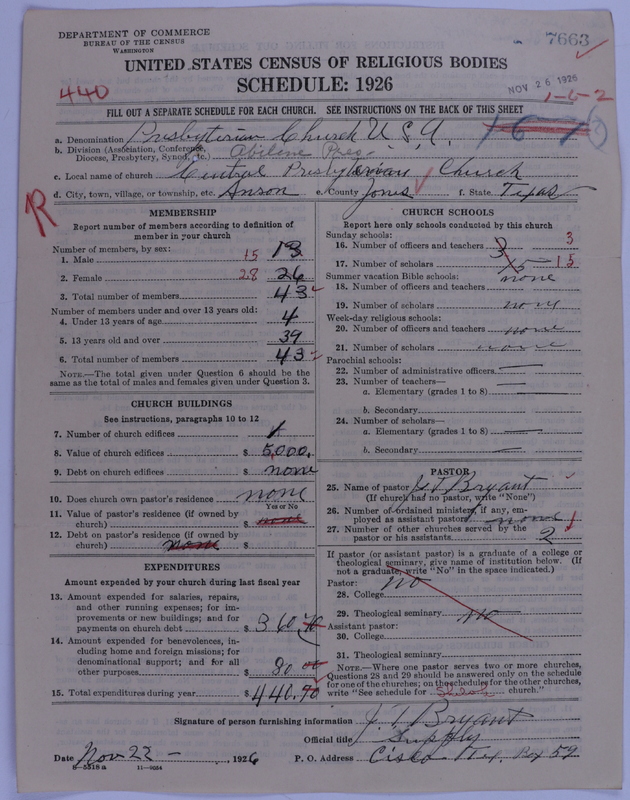 DEPARTMENT OF COMMERCE
BUREAU OF THE CENSUS
WASHINGTON
7663
UNITED STATES CENSUS OF RELIGIOUS BODIES
SCHEDULE: 1926
NOV 26 1926
440
1-6-2
FILL OUT A SEPARATE SCHEDULE FOR EACH CHURCH. SEE INSTRUCTIONS ON THE BACK OF THIS SHEET
a. Denomination Presbyterian Church U.S.A.
167
b. Division (Association, Conference, Diocese, Presbytery, Synod, etc.) Abilene Pres.
c. Local name of church Central Presbyterian Church
d. City, town, village, or township, etc. Anson e. County Jones f. State Texas
R
MEMBERSHIP
Report number of members according to definition of member in your church
Number of members, by sex:
1. Male 15 13
2. Female 28 26
3. Total number of members 43
Number of members under and over 13 years old:
4. Under 13 years of age 4
5. 13 years old and over 39
6. Total number of members 43
NOTE.—The total given under Question 6 should be the same as the total of males and females given under Question 3.
CHURCH BUILDINGS
See instructions, paragraphs 10 to 12
7. Number of church edifices 1
8. Value of church edifices $ 5,000.
9. Debt on church edifices $ none
10. Does church own pastor's residence none
Yes or No
11. Value of pastor's residence (if owned by church) $ none
12. Debt on pastor's residence (if owned by church) none $
EXPENDITURES
Amount expended by your church during last fiscal year
13. Amount expended for salaries, repairs, and other running expenses; for improvements or new buildings; and for payments on church debt $ 360.70
14. Amount expended for benevolences, including home and foreign missions; for denominational support; and for all other purposes $ 80 00
15. Total expenditures during year $ 440.70
CHURCH SCHOOLS
Report here only schools conducted by this church
Sunday schools:
16. Number of officers and teachers 3 3
17. Number of scholars 15 15
Summer vacation Bible schools:
18. Number of officers and teachers none
19. Number of scholars none
Week-day religious schools:
20. Number of officers and teachers none
21. Number of scholars none
Parochial schools:
22. Number of administrative officers
23. Number of teachers—
a. Elementary (grades 1 to 8)
b. Secondary
24. Number of scholars—
a. Elementary (grades 1 to 8)
b. Secondary
PASTOR
25. Name of pastor J T Bryant
(If church has no pastor, write "None")
26. Number of ordained ministers, if any, employed as assistant pastors none
27. Number of other churches served by the pastor or his assistants 2
If pastor (or assistant pastor) is a graduate of a college or theological seminary, give name of institution below. (If not a graduate, write "No" in the space indicated.)
Pastor:
28. College no
29. Theological seminary no
Assistant pastor:
30. College
31. Theological seminary
NOTE.—Where one pastor serves two or more churches, Questions 28 and 29 should be answered only on the schedule for one of the churches; on the schedules for the other churches, write "See schedule for church."
Signature of person furnishing information J T Bryant
Official title Supply
Date Nov 22 —, 1926 P. O. Address Cisco Tex, Box 59
8—5518 a 11—9024